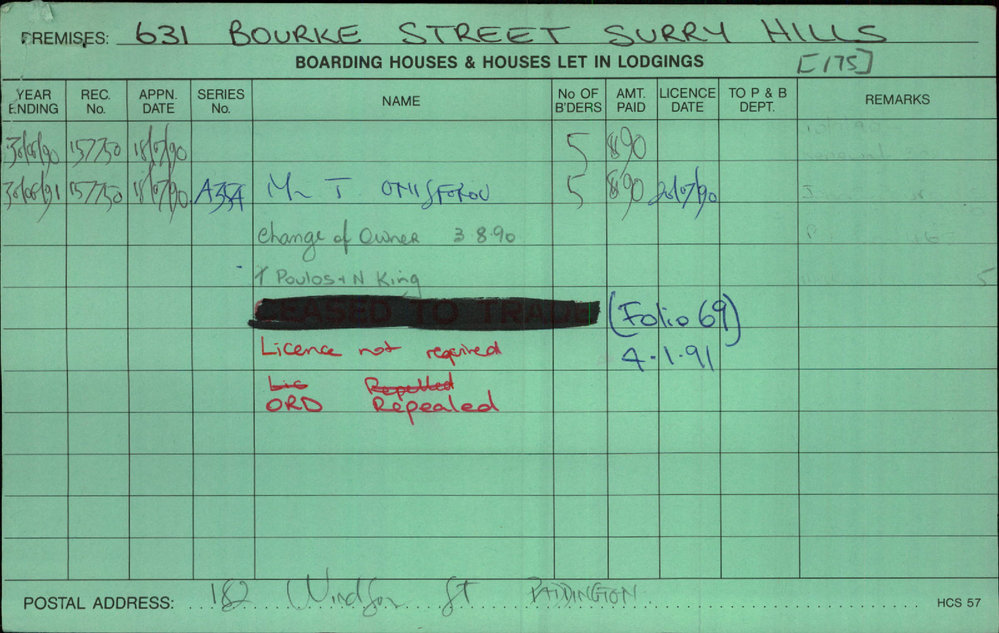 PREMISES: 631 BOURKE STREET SURRY HILLS
BOARDING HOUSES & HOUSES LET IN LODGINGS [175]
YEAR ENDING REC. No. APPN. DATE SERIES No. NAME No OF B'DERS AMT. PAID LICENCE DATE TO P & B DEPT. REMARKS
30/06/90 157750 18/07/90 5 890
30/06/91 157750 18/07/90 A354 Mr T 5 890 20/07/90
Change of Owner 3 8.90
T Poulos + N King
CEASED TO TRADE (Folio 69)
Licence not required 4.1.91
Lic Repelled
ORD Repealed
POSTAL ADDRESS: 182 Windsor St PADDINGTON
HCS 57